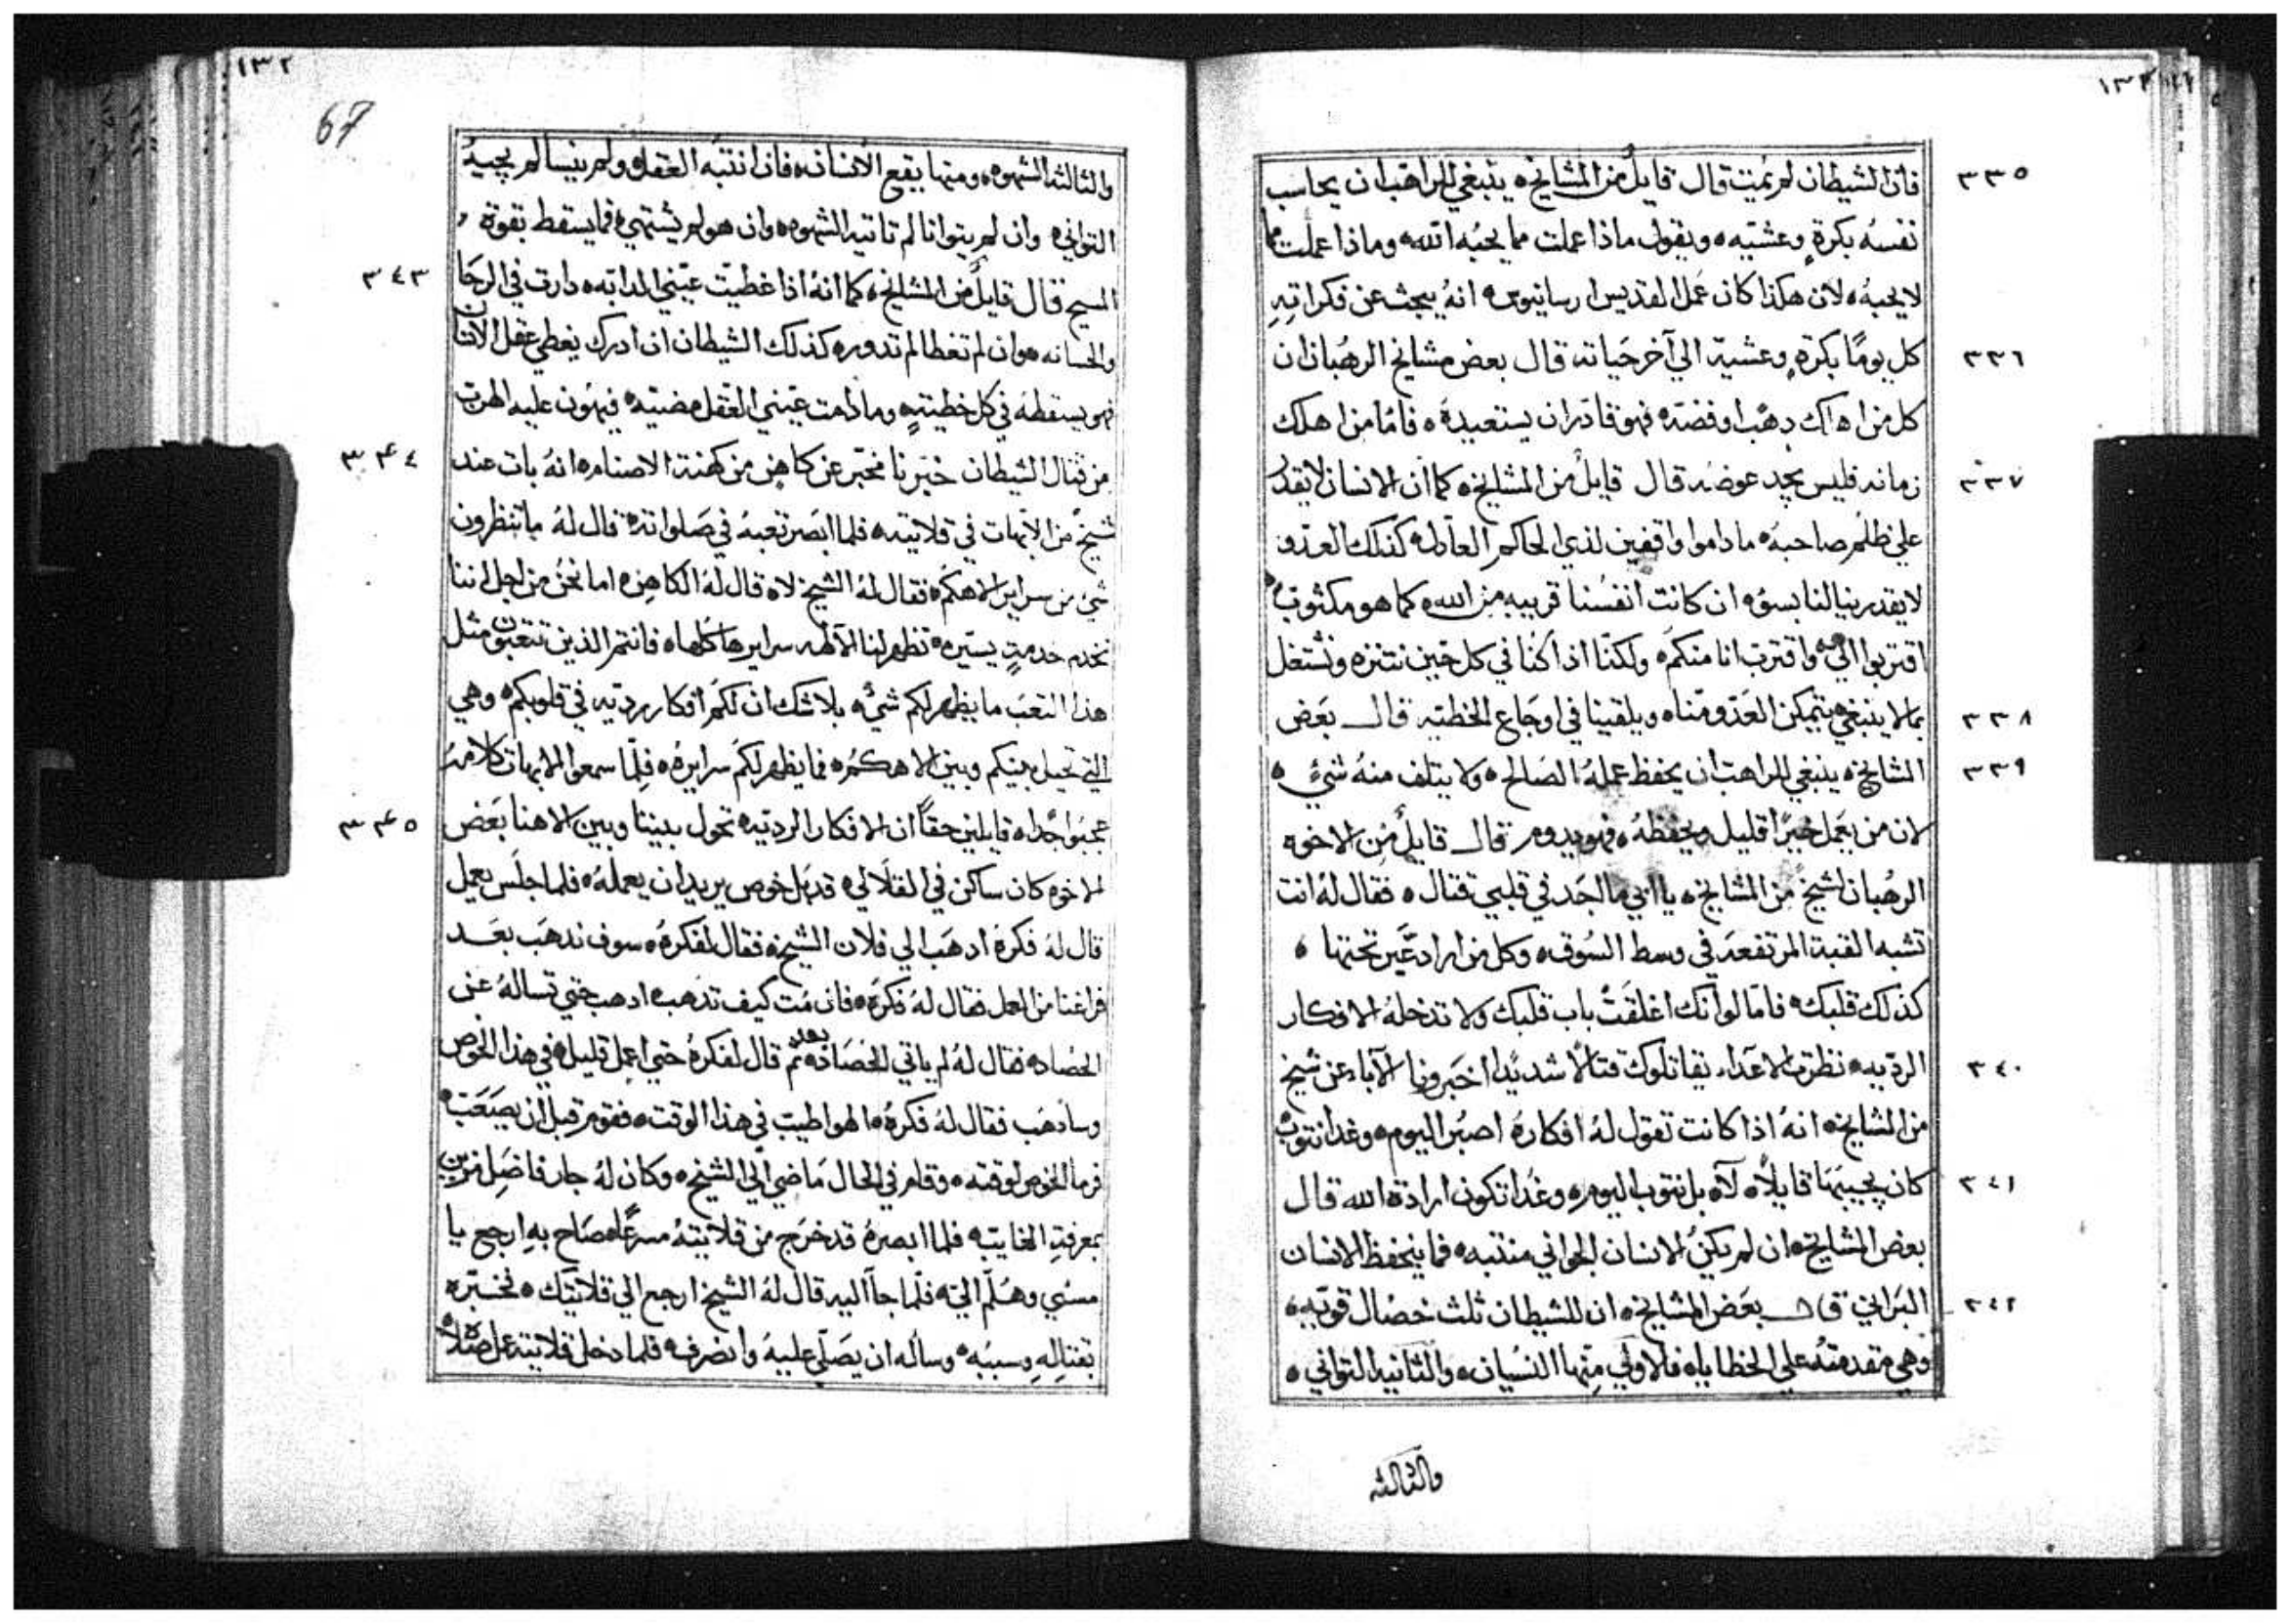 ١٣٢
٣٣٥ فان الشيطان لم يميت قال قايل من المشايخ ينبغي للراهب ان يحاسب
نفسه بكرة وعشيه ويقول ماذا عملت مما يحبه الله وماذا عملت مما
لا يحبه لان هكذا كان عمل القديس ارسانيوس انه يبحث عن فكراته
٣٣٦ كل يوما بكره وعشية الي آخر حياته قال بعض مشايخ الرهبان ان
كل من اهلك دهبا او فضه فهو قادر ان يستعيده فاما من اهلك
٣٣٧ زمانه فليس يجد عوضه قال قايل من المشايخ كما ان الانسان لا يقدر
علي ظلم صاحبه ماداموا واقفين لذي الحاكم العادل كذلك العدو
لا يقدر ينالنا بسوء ان كانت انفسنا قريبه من الله كما هو مكتوب
اقتربوا الي واقترب انا منكم ولكنا اذا كنا في كل حين نتنزه ونشتغل
٣٣٨ بما لا ينبغي يتمكن العدو منا ويلقينا في اوجاع الخطيه قال بعض
٣٣٩ المشايخ ينبغي للراهب ان يحفظ عمله الصالح ولا يتلف منه شيء
لان من يعمل خيرا قليل ويحفظه فهو يدوم قال قايل من الاخوه
الرهبان لشيخ من المشايخ يا ابي ما اجد في قلبي قتال فقال له انت
تشبه القبة المرتفعه في وسط السوق وكل من اراد عبر تحتها
كذلك قلبك فاما لو انك اغلقت باب قلبك ولا تدخله الافكار
٣٤٠ الرديه نظرت الاعداء يقاتلوك قتالا شديدا اخبرونا الآباء عن شيخ
من المشايخ انه اذا كانت تقول له افكاره اصبر اليوم وغدا نتوب
٣٤١ كان يجيبها قايلا لا بل نتوب اليوم وغدا تكون ارادة الله قال
بعض المشايخ ان لم يكن الانسان الجواني منتبه فما ينحفظ الانسان
٣٤٢ البراني قال بعض المشايخ ان للشيطان ثلث خصال قويه
وهي متقدمة علي الخطايا فالاولي منها النسيان والثانيه التواني
والثالثه
١٣٢
67
والثالثه الشهوه ومنها يقع الانسان فاذا انتبه العقل ولم ينسا لم يجيه
التواني وان لم يتوانا لم تاتيه الشهوه وان هو لم يشتهي فما يسقط بقوة
٣٤٣ المسيح قال قايل من المشايخ كما انه اذا غطيت عيني الدابه دارت في الرحا
والحسانه وان لم تغطا لم تدور كذلك الشيطان ان ادرك يغطي عقل الانسان
فهو يسقطه في كل خطيته ومادامت عيني العقل مضيه فيهون عليه الهرب
٣٤٤ من قتال الشيطان خبرنا مخبر عن كاهن من كهنة الاصنام انه بات عند
شيخ من الابهات في قلايته فلما ابصر تعبه في صلواته قال له ما تنظرون
شي من سراير الاهكم فقال له الشيخ لا قال له الكاهن اما نحن من اجل اننا
نخدم خدمة يسيره تظهر لنا الآلهه سرايرها كلها فانتم الذين تتعبون مثل
هذا التعب ما يظهر لكم شيء بلا شك ان لكم افكار رديه في قلوبكم وهي
التي تحيل بينكم وبين الاهكم فما يظهر لكم سرايره فلما سمعوا الابهات كلامه
٣٤٥ عجبوا جدا قايلين حقا ان الافكار الرديه تحول بيننا وبين الاهنا بعض
الاخوه كان ساكن في القلالي قد بل خوص يريد ان يعمله فلما جلس يعمل
قال له فكره ادهب الي فلان الشيخ فقال لفكره سوف ندهب بعد
فراغنا من العمل فقال له فكره فان مت كيف تذهب ادهب حتي تساله عن
الحصاد فقال له لم ياتي الحصاد بعد ثم قال لفكره حتي اعمل قليل في هذا الخوص
وسادهب فقال له فكره الهوا طيب في هذا الوقت فقوم قبل ان يصعب
فرما الخوص لوقته وقام في الحال ماضي الي الشيخ وكان له جار فاضل مزين
بمعرفة الغايبه فلما ابصره قد خرج من قلايته مسرعا صاح به ارجع يا
مسبي وهلم الي فلما جا اليه قال له الشيخ ارجع الي قلايتك فخبره
بقتاله وسببه وساله ان يصلي عليه وانصرف فلما دخل قلايته عمل صلاه